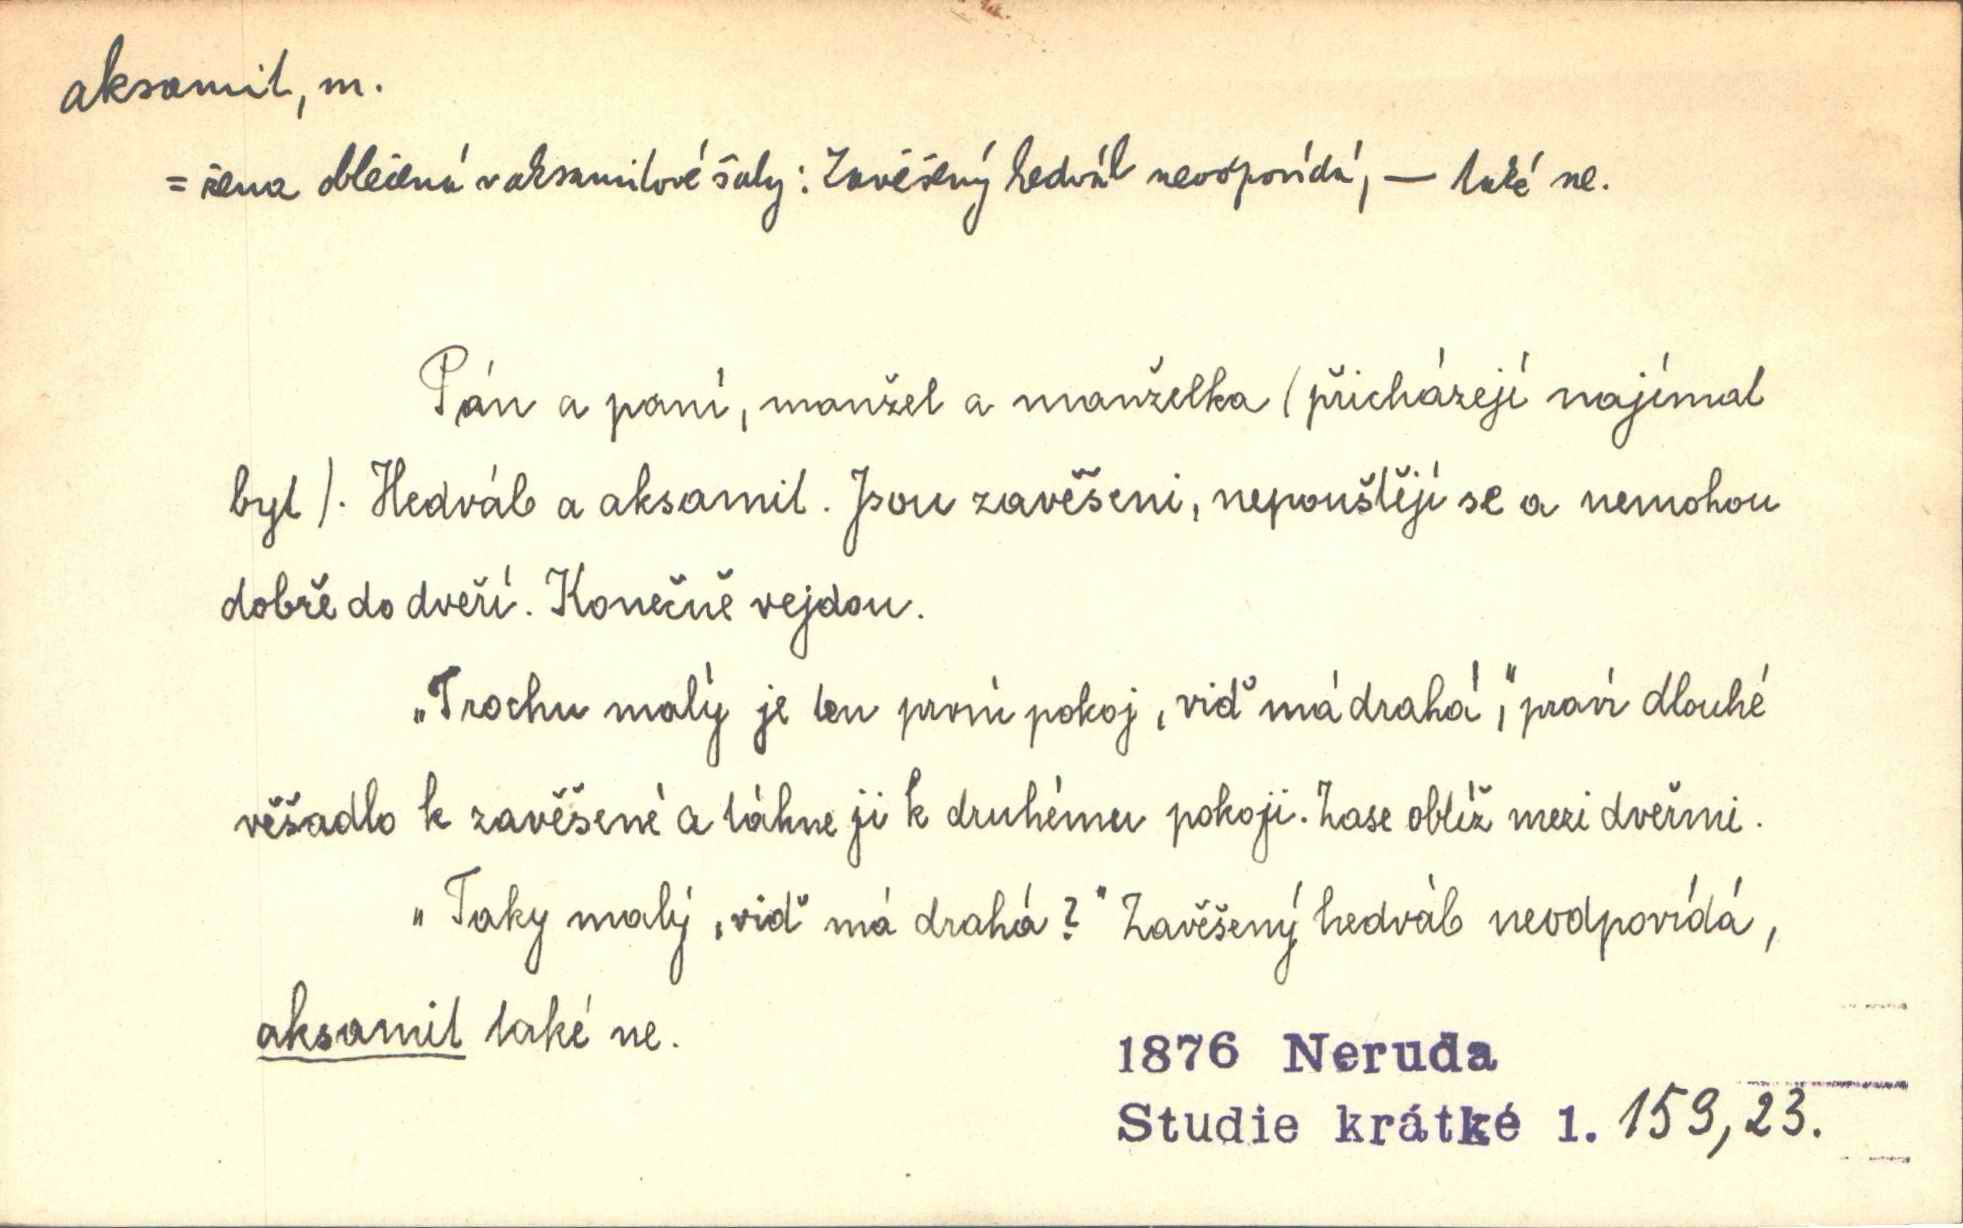 aksamit, m.
= žena oblečená v aksamitové šaty: Zavěšený hedváb neodpovídá, — také ne.
Pán a paní, manžel a manželka (přicházejí najímat
byt). Hedváb a aksamit. Jsou zavěšeni, nepouštějí se a nemohou
dobře do dveří. Konečně vejdou.
„Trochu malý je ten první pokoj, viď má drahá," praví dlouhé
věšadlo k zavěšené a táhne ji k druhému pokoji. Zase obtíž mezi dveřmi.
„Taky malý, viď má drahá?" Zavěšený hedváb neodpovídá,
aksamit také ne.
1876 Neruda
Studie krátké 1. 159, 23.